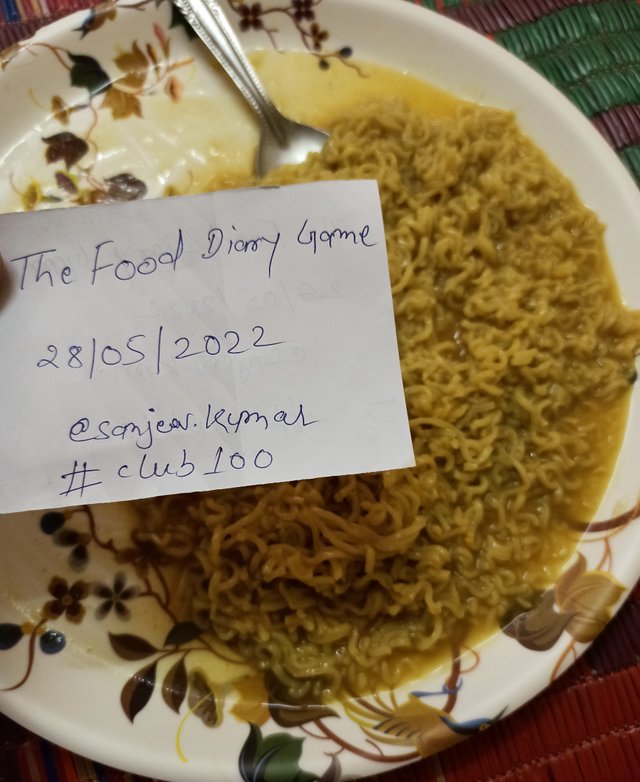 The Food Diary Game
28/05/2022
@sanjeev.kumar
#club100